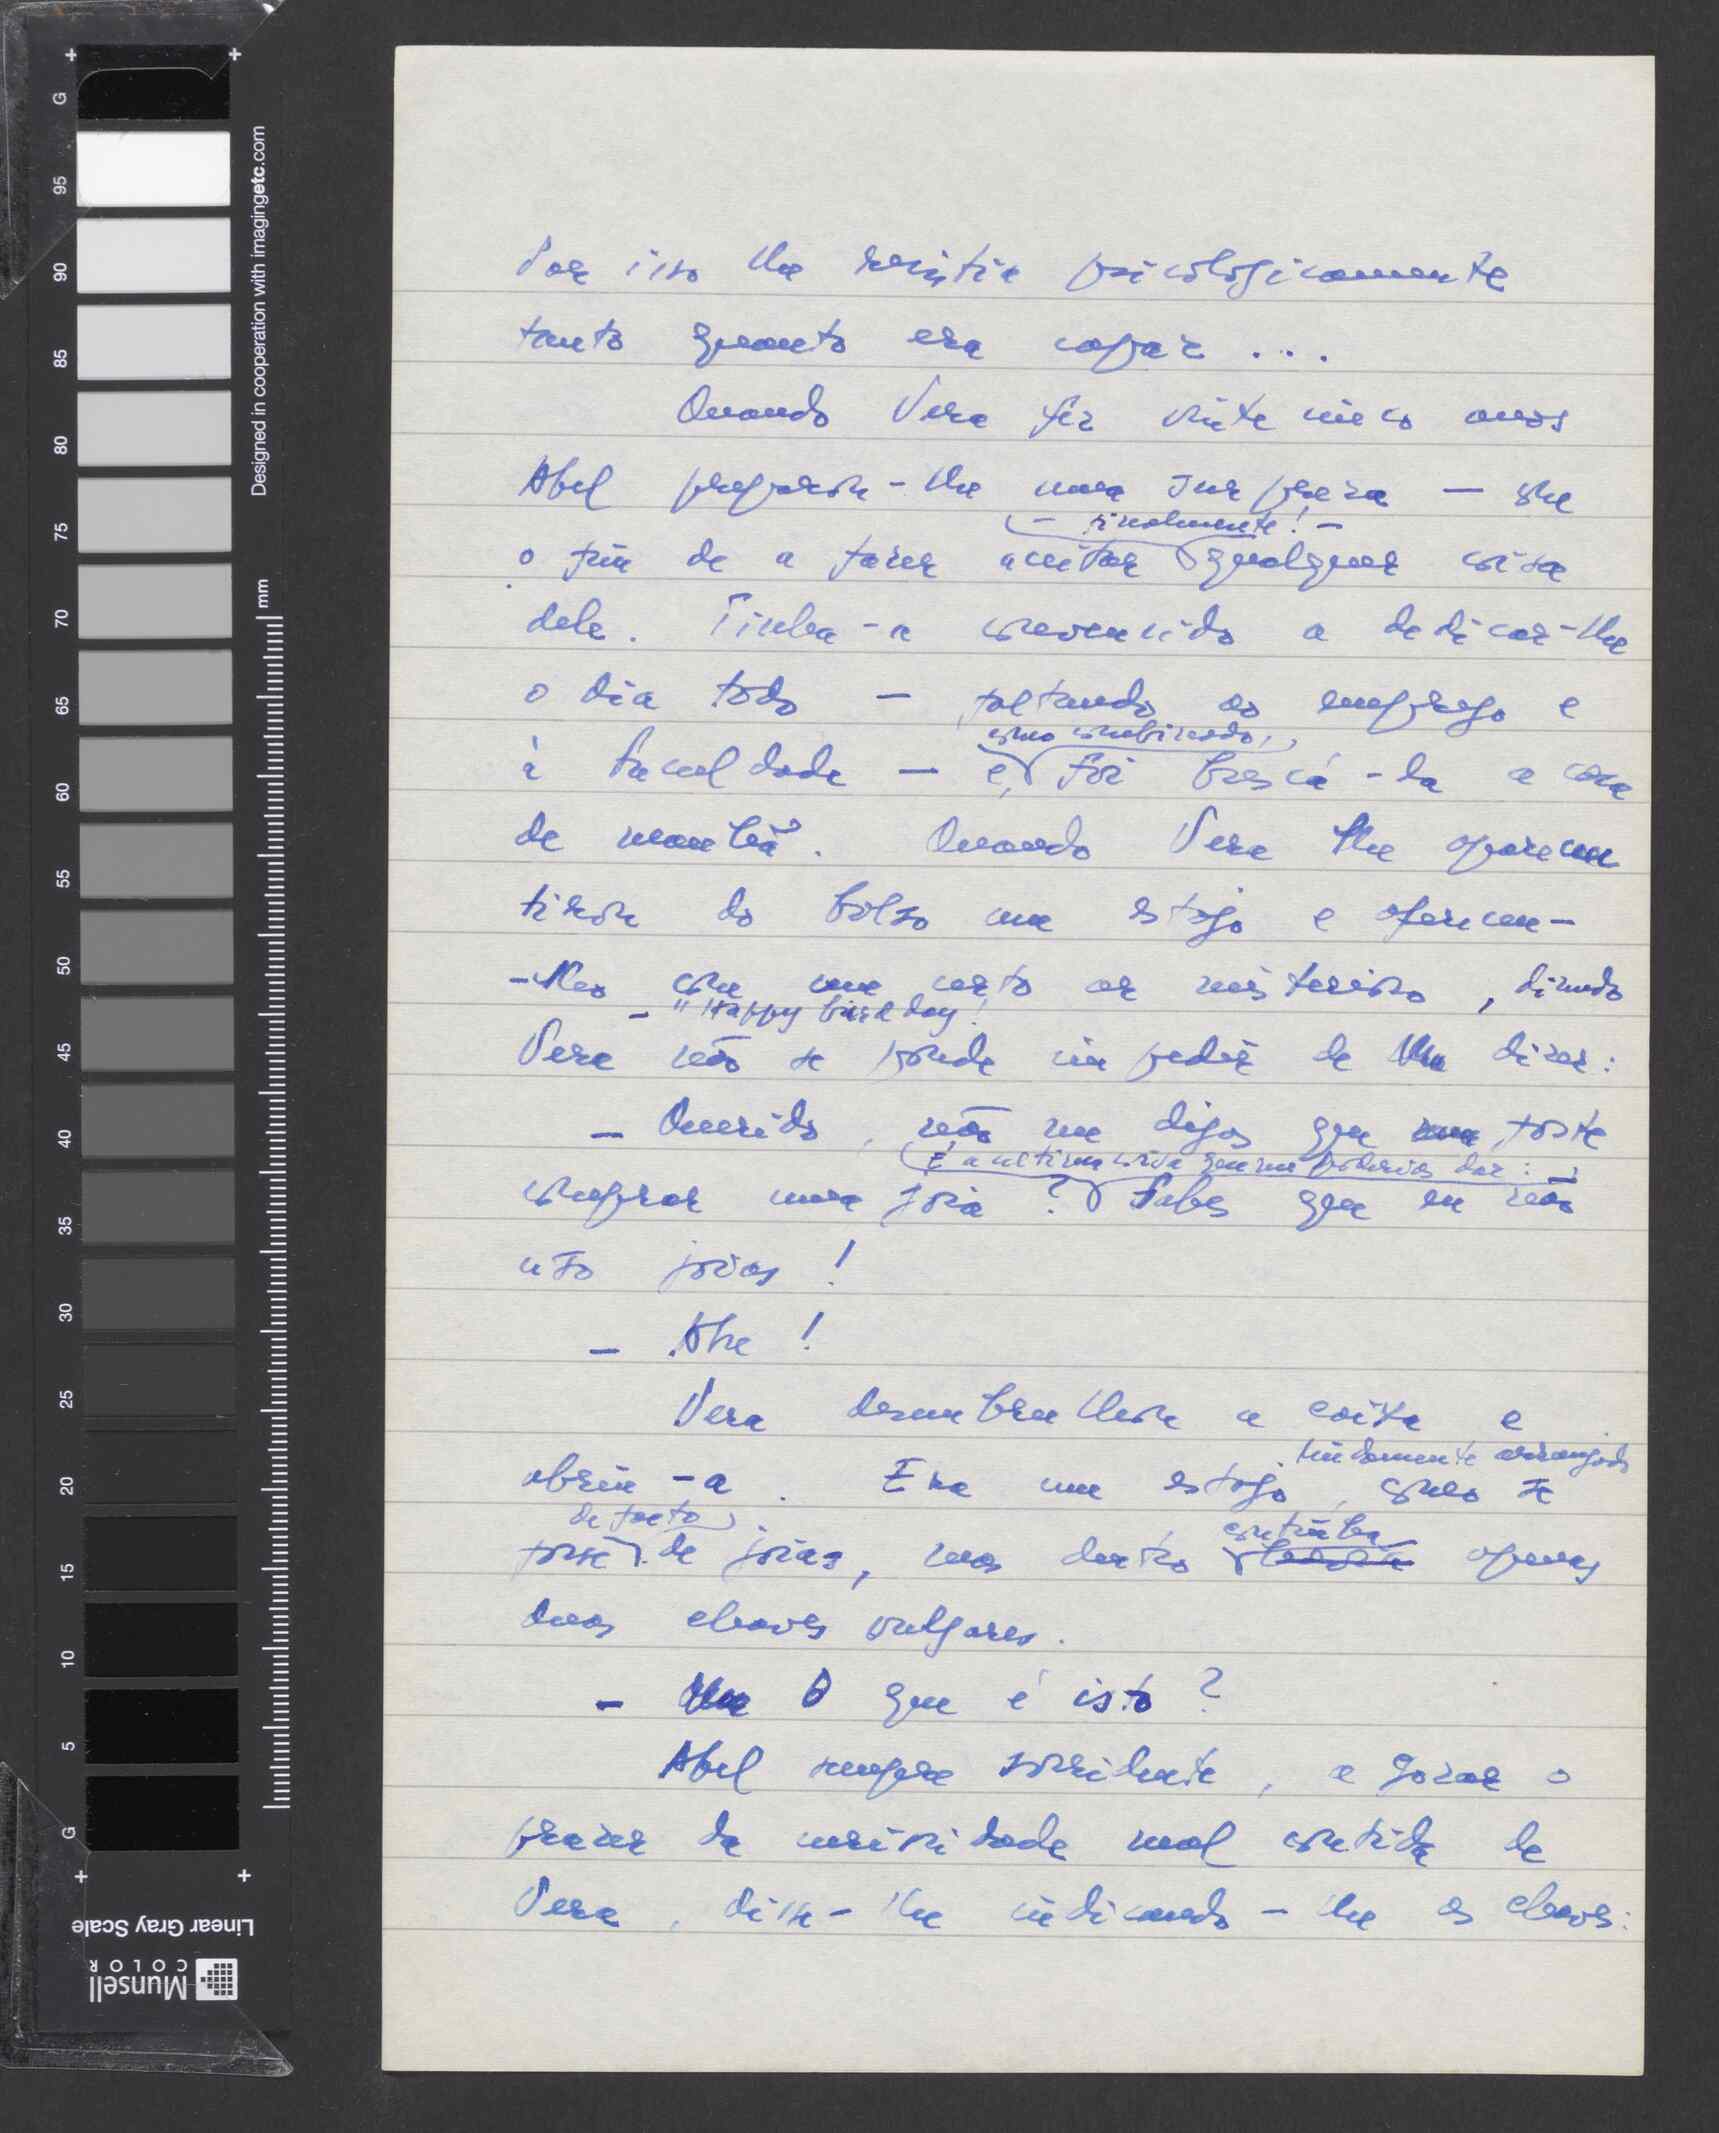 Por isso lhe resistia psicologicamente
tanto quanto era capaz ...
Quando Vera fez vinte cinco anos
Abel preparou-lhe uma surpresa — com
— finalmente! —
o fim de a fazer aceitar qualquer coisa
dele. Tinha-a convencido a dedicar-lhe
o dia todo — faltando ao emprego e
como combinado,
à faculdade — e, foi buscá-la a casa
de manhã. Quando Vera lhe apareceu
tirou do bolso um estojo e ofereceu-
-lho com um certo ar misterioso, dizendo
— "Happy birthday!
Vera não se poude impedir de lhe dizer:
— Querido, não me digas que me foste
É a ultima coisa que me poderias dar:
comprar uma joia? Sabes que eu não
uso joias!
— Abre!
Vera desembrulhou a caixa e
lindamente arranjado
abriu-a. Era um estojo, como se
de facto
fosse de joias, mas dentro continha apenas
duas chaves vulgares.
— O que é isto?
Abel sempre sorridente, a gozar o
prazer da curiosidade mal contida de
Vera, disse-lhe indicando-lhe as chaves:
G
95
90
85
80
75
70
65
60
55
50
45
40
35
30
25
20
15
10
5
G
Designed in cooperation with imagingetc.com
mm
Linear Gray Scale
Munsell
COLOR